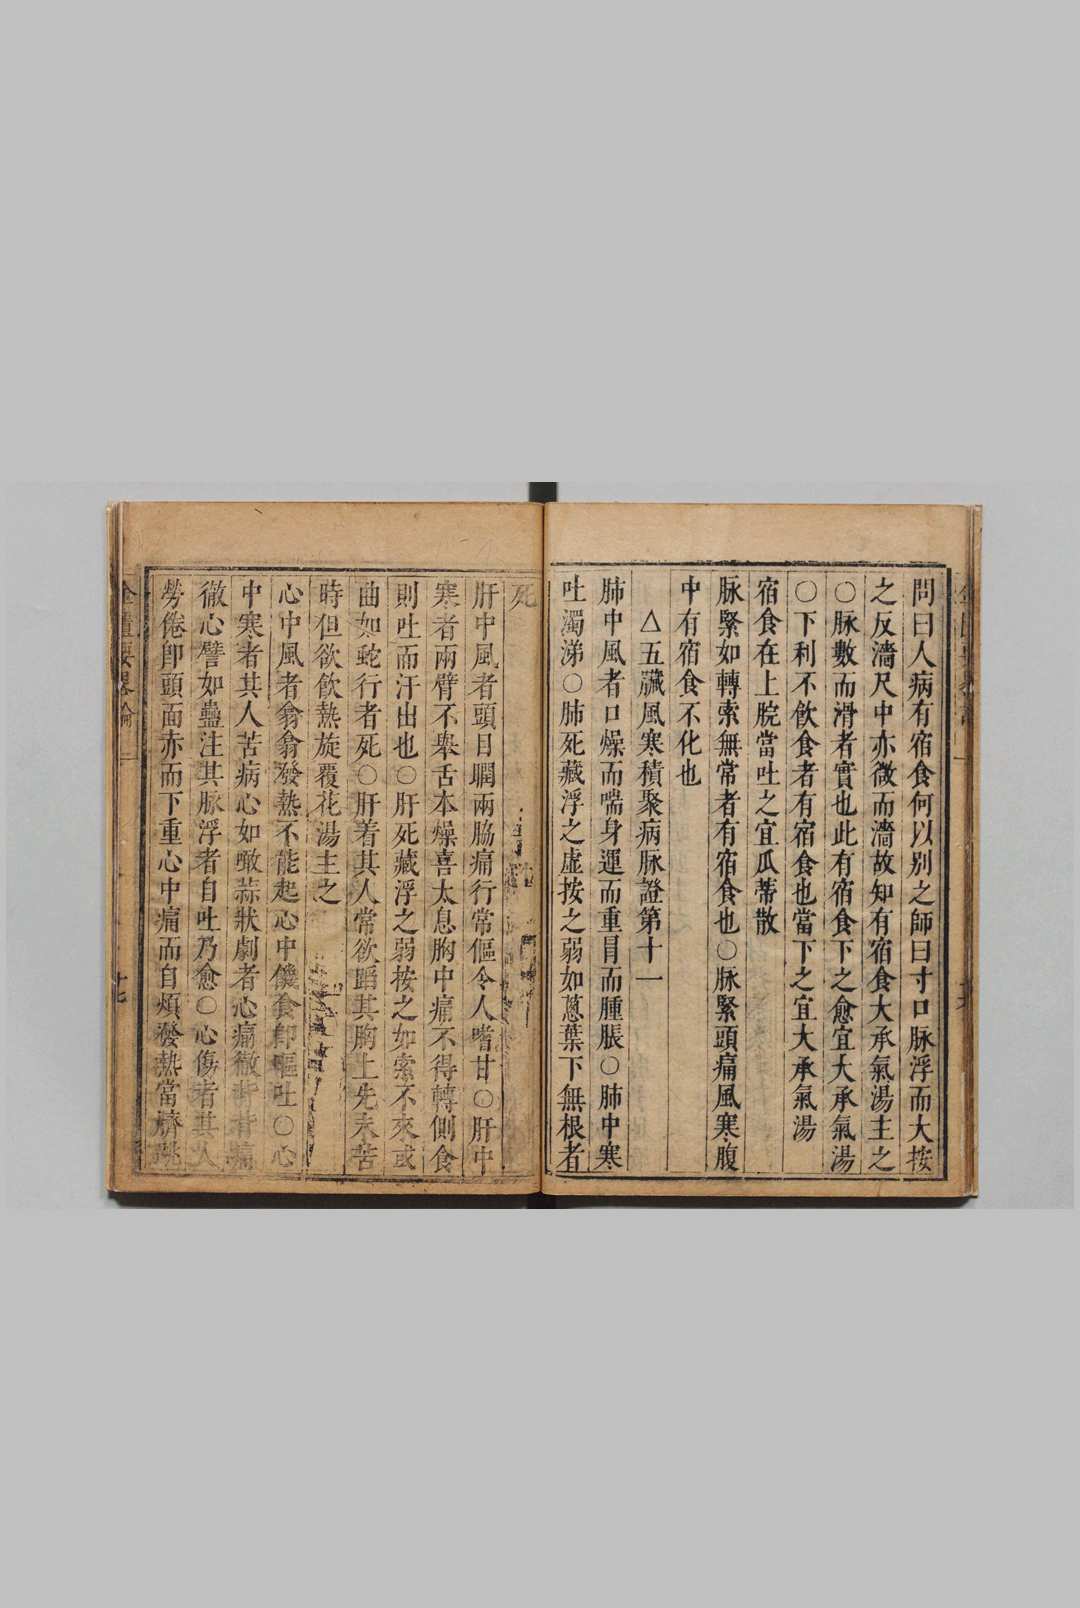 問曰人病有宿食何以別之師曰寸口脉浮而大按
之反濇尺中亦微而濇故知有宿食大承氣湯主之
○脉數而滑者實也此有宿食下之愈宜大承氣湯
○下利不飲食者有宿食也當下之宜大承氣湯
宿食在上脘當吐之宜瓜蒂散
脉緊如轉索無常者有宿食也○脉緊頭痛風寒腹
中有宿食不化也
△五臟風寒積聚病脉證第十一
肺中風者口燥而喘身運而重冒而腫脹○肺中寒
吐濁涕○肺死藏浮之虛按之弱如蔥葉下無根者
死
肝中風者頭目瞤兩脇痛行常傴令人嗜甘○肝中
寒者兩臂不舉舌本燥喜太息胸中痛不得轉側食
則吐而汗出也○肝死藏浮之弱按之如索不來或
曲如蛇行者死○肝着其人常欲蹈其胸上先未苦
時但欲飲熱旋覆花湯主之
心中風者翕翕發熱不能起心中饑食卽嘔吐○心
中寒者其人苦病心如噉蒜狀劇者心痛徹背背痛
徹心譬如蠱注其脉浮者自吐乃愈○心傷者其人
勞倦卽頭面赤而下重心中痛而自煩發熱當臍跳
金匱要畧論
十七